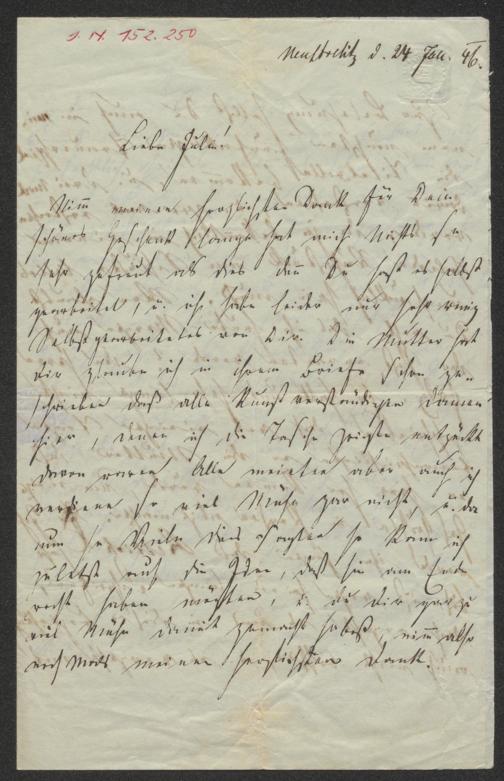 I. N. 152.250
Neustrelitz d. 24 Jan. 46.
Liebe Julie!
Nim meinen herzlichsten Dank für Dein
schönes Geschenk, lange hat mich Nichts so
sehr gefreut als dies, den Du hast es selbst
gearbeitet, u. ich habe leider nur sehr wenig
Selbstgearbeitetes von Dir. Deine Mutter hat
Dir glaube ich in ihrem Briefe schon ge-
schrieben daß alle Kunstverständigen Damen
hier, denen ich die Tasche zeigte entzückt
davon waren. Alle meinten aber auch ich
verdiene so viel Mühe gar nicht, u. da
nun so Viele dies sagten so kam ich
zuletzt auf die Idee, daß sie am Ende
recht haben möchten, u. du dir gar zu
viel Mühe damit gemacht habest, nim also
noch Mals meinen herzlichsten Dank.